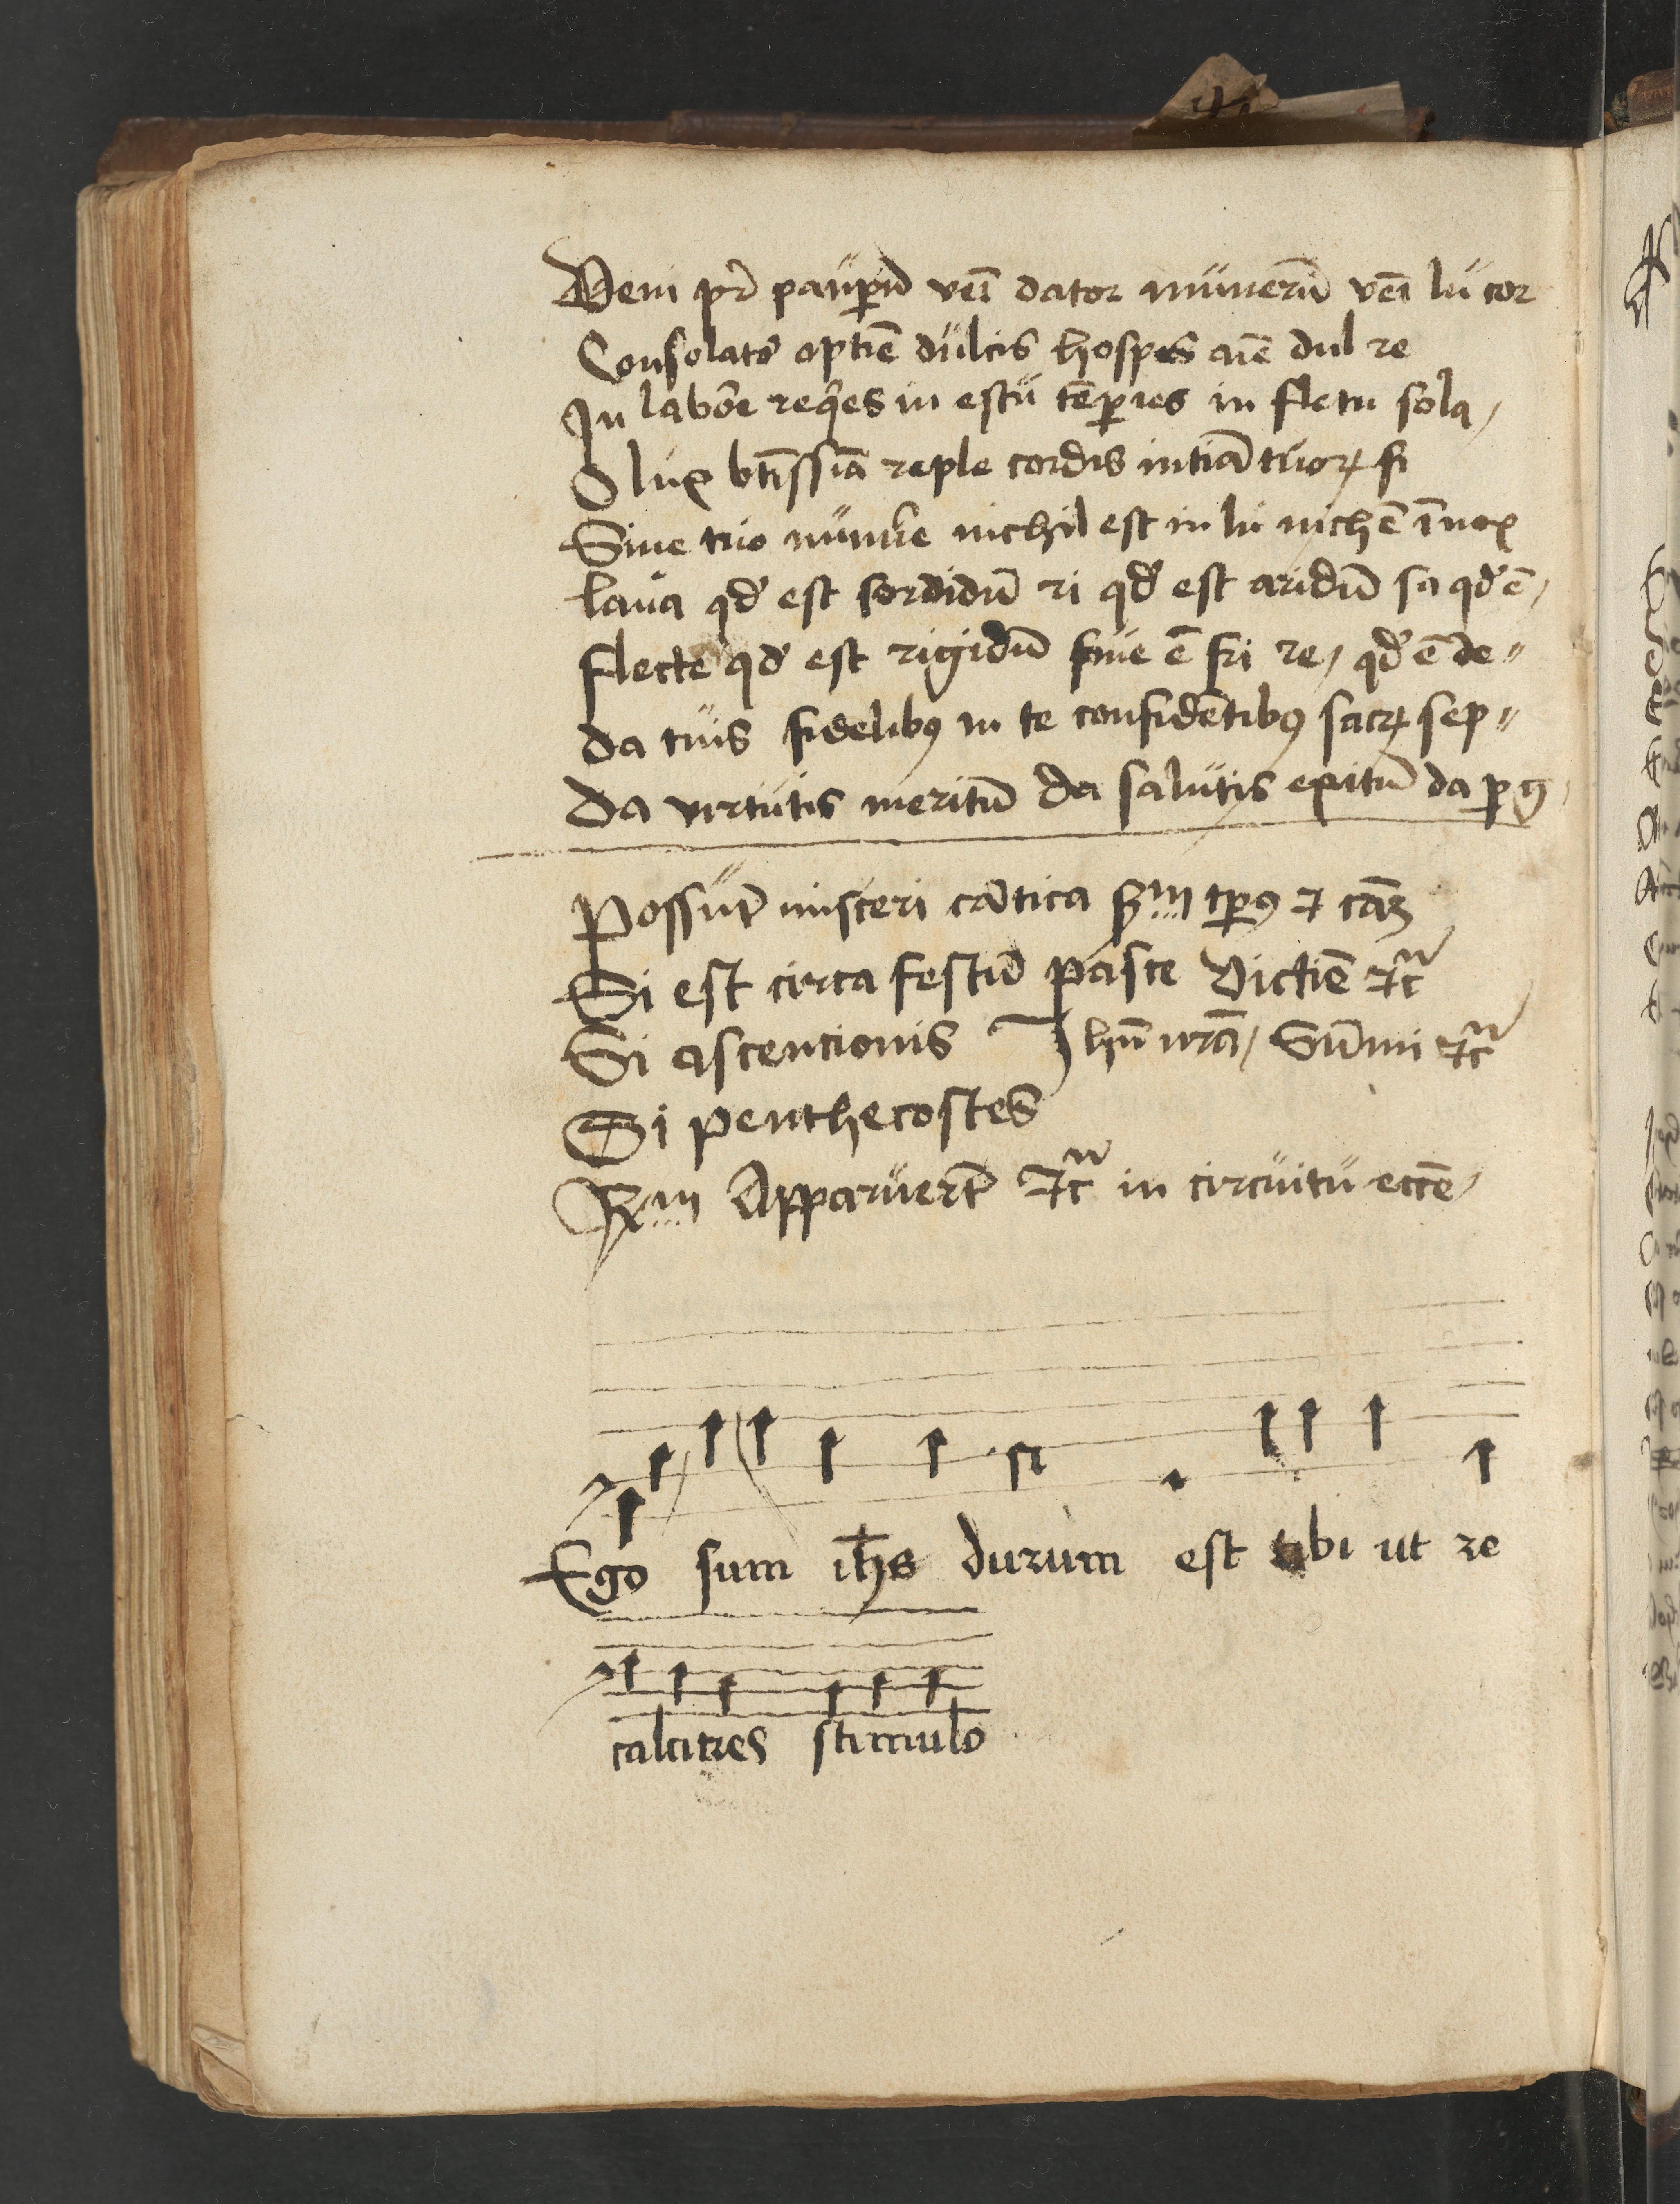 Veni pr̄ paup̄ū vēi dator munerū vēi lu cor
Consolatͦ optiē dulcis hospes aīe dul re
In labore reqͥes in estu tēp̄ies in fletu sola
O lux btīssīa reple cordis intīa tuoꝝ fi
Sine tuo numīe nichil est in lu nich ē ī nox
lava qd̓ est sordidū ri qd̓ est aridū sa qd̓ ē
flecte qd̓ est rigidū ē fri re qd̓ ē de
da tuis fidelibꝰ in te confidētibꝰ sacꝝ sep
Da virtutis meritū da salutis exitū da p̄ g
Possut̄ misceri cātica tp̄ꝰ ⁊
Si est circa festū pasce Victiē ⁊c̄
Si ascentionis Ihū nrā Sūmi ⁊c̄
Si penthecostes
Apparuert̄ ⁊c̄ in circuitu eccē
Ego sum ihs durum est tibi ut re
calcitres stimulo